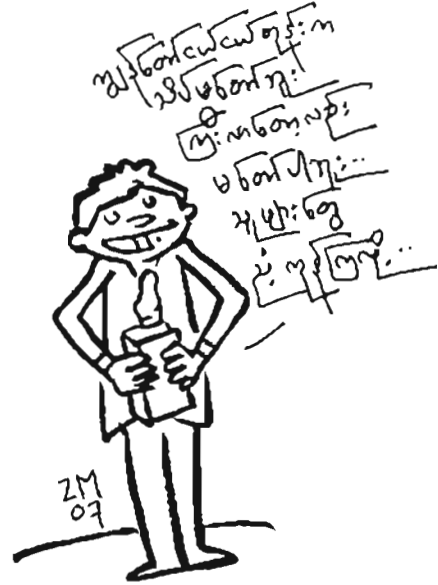 ကျွန်တော်ငယ်ငယ်တုန်းက
သိပ်မတော်ဘူး
ကြီးလာတော့လည်း
မတော်ပါဘူး...
သူများတွေ
ZM
07